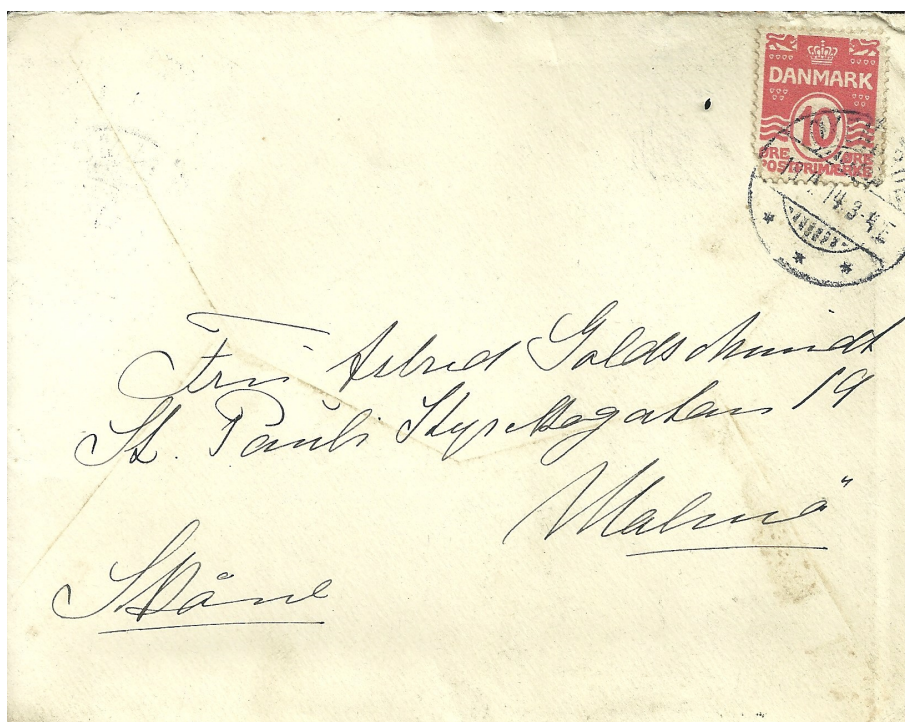 DANMARK
10
ØRE ØRE
POSTFRIMÆRKE
14.3-4E
Fru Astrid Goldschmidt
St. Pauli Kyrkogatan 19
Malmö
Skåne